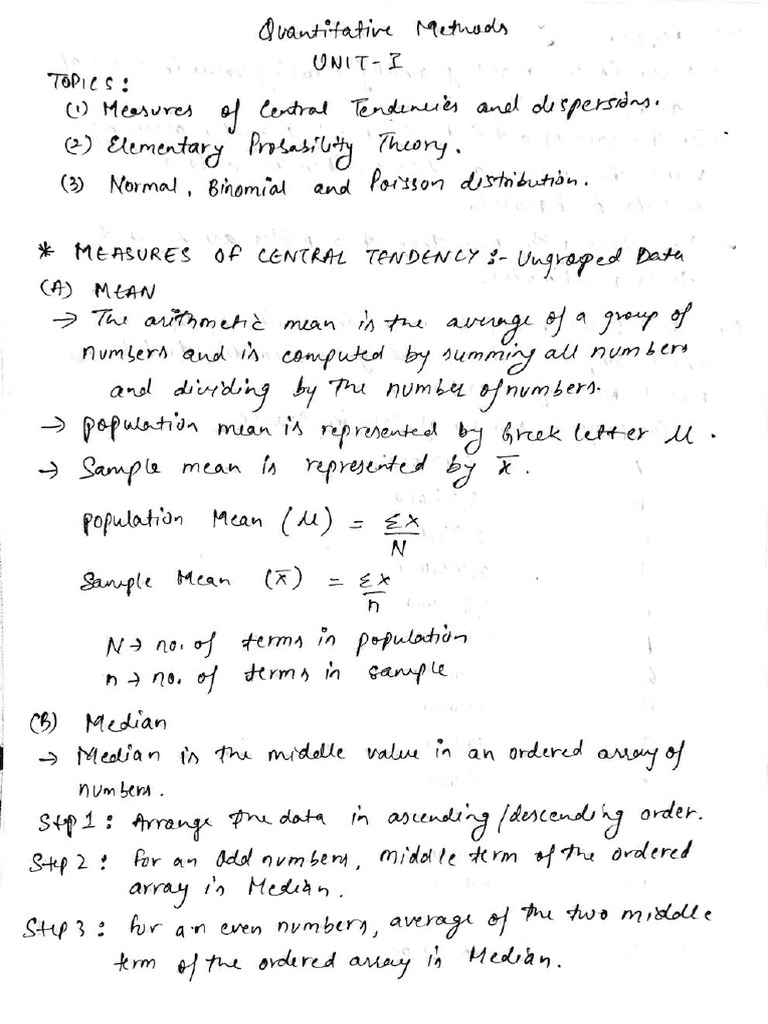 Quantitative Methods
UNIT-I
TOPICS:
(1) Measures of Central Tendencies and dispersions.
(2) Elementary Probability Theory.
(3) Normal, Binomial and Poisson distribution.
* MEASURES OF CENTRAL TENDENCY :- Ungrouped Data
(A) MEAN
→ The arithmetic mean is the average of a group of
numbers and is computed by summing all numbers
and dividing by the number of numbers.
→ population mean is represented by Greek letter μ.
→ Sample mean is represented by x̄.
population Mean (μ) = Σx
N
Sample Mean (x̄) = Σx
n
N → no. of terms in population
n → no. of terms in sample
(B) Median
→ Median is the middle value in an ordered array of
numbers.
Step 1: Arrange the data in ascending/descending order.
Step 2: for an odd numbers, middle term of the ordered
array is Median.
Step 3: for an even numbers, average of the two middle
term of the ordered array is Median.